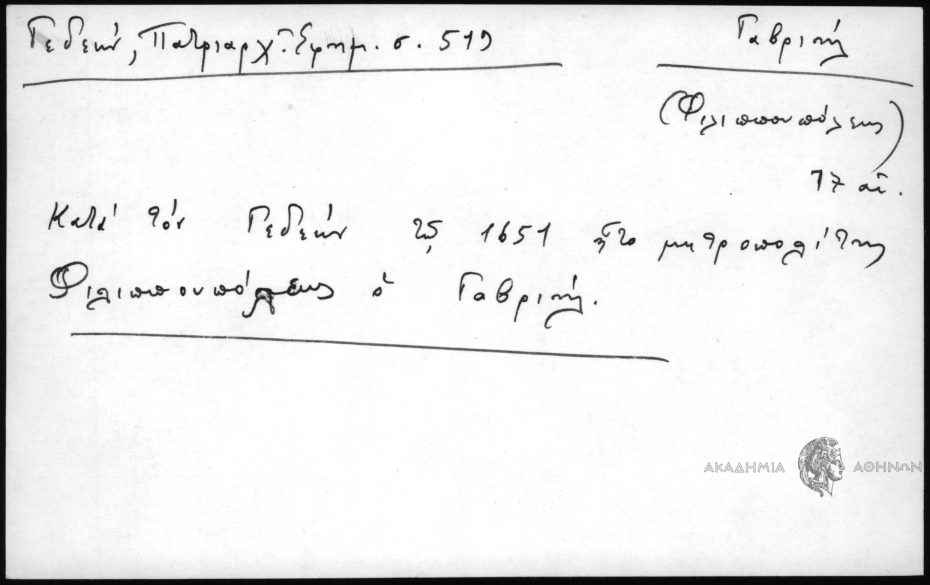 Γεδεών, Πατριαρχ. Ἐφημ. σ. 519
Γαβριήλ
(Φιλιππουπόλεως)
17 αἰ.
Κατά τόν Γεδεών τῷ 1651 ἦτο μητροπολίτης
Φιλιππουπόλεως ὁ Γαβριήλ.
ΑΚΑΔΗΜΙΑ ΑΘΗΝΩΝ